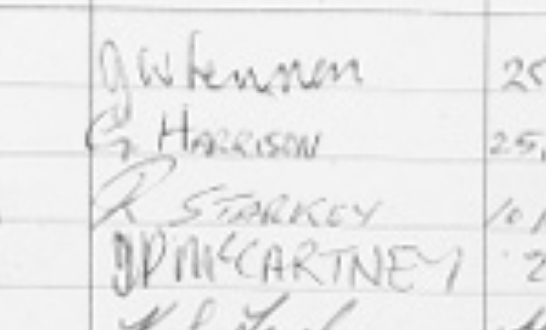 JW Lennon 25
G HARRISON 25,
R STARKEY 10,
JP McCARTNEY 2